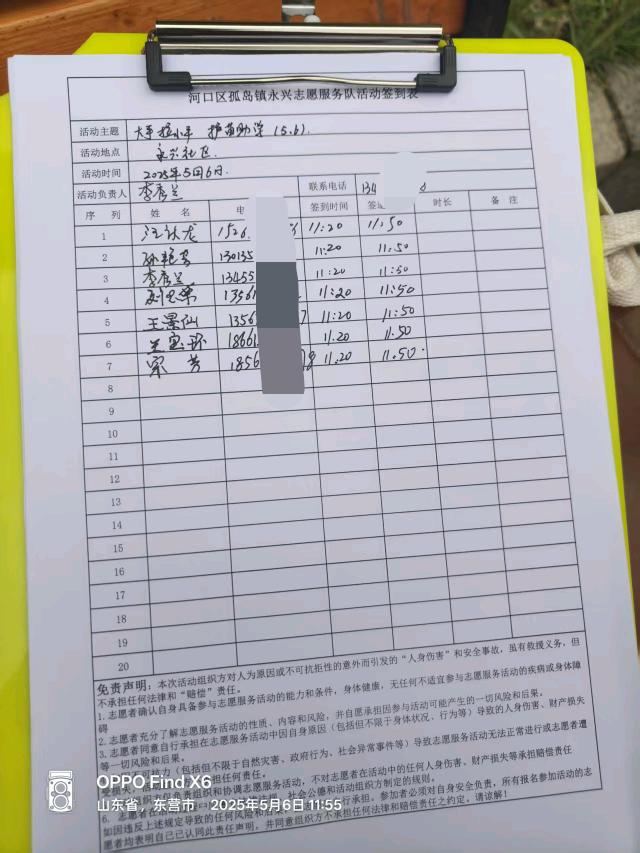 河口区孤岛镇永兴志愿服务队活动签到表
活动主题 大手拉小手 护苗助学 (5.6).
活动地点 永兴社区.
活动时间 2025年5月6日.
活动负责人 李彦兰 联系电话 134
序 列 姓 名 电 签到时间 签 时长 备 注
1 龙 1526 11:20 11:50
2 孙艳 130135 11:20 11:50
3 李彦兰 13455 11:20 11:50
4 13561 11:20 11:50
5 王景仙 1356 7 11:20 11:50
6 兰 18661 11.20 11.50
7 芳 1856 8 11.20 11.50.
8
9
10
11
12
13
14
15
16
17
18
19
20
免责声明：本次活动组织方对人为原因或不可抗拒性的意外而引发的“人身伤害”和安全事故，虽有救援义务，但
不承担任何法律和“赔偿”责任。
1. 志愿者确认自身具备参与志愿服务活动的能力和条件，身体健康，无任何不适宜参与志愿服务活动的疾病或身体障
碍
2. 志愿者充分了解志愿服务活动的性质、内容和风险，并自愿承担因参与活动可能产生的一切风险和后果。
3. 志愿者同意自行承担在志愿服务活动中因自身原因（包括但不限于身体状况、行为等）导致的人身伤害、财产损失
等一切风险和后果。
（包括但不限于自然灾害、政府行为、社会异常事件等）导致志愿服务活动无法正常进行或志愿者遭
受损失，担任何责任。
组织方仅负责组织和协调志愿服务活动，不对志愿者在活动中的任何人身伤害、财产损失等承担赔偿责任
6. 志愿者在活 社会公德和活动组织方制定的规则。
如因违反上述规定导致的任何风险和后果 行承担。参加者必须对自身安全负责，所有报名参加活动的志
愿者均表明自己已认同此责任声明，并同意组织方不承担任何法律和赔偿责任之约定。请谅解！
OPPO Find X6
山东省，东营市 2025年5月6日 11:55